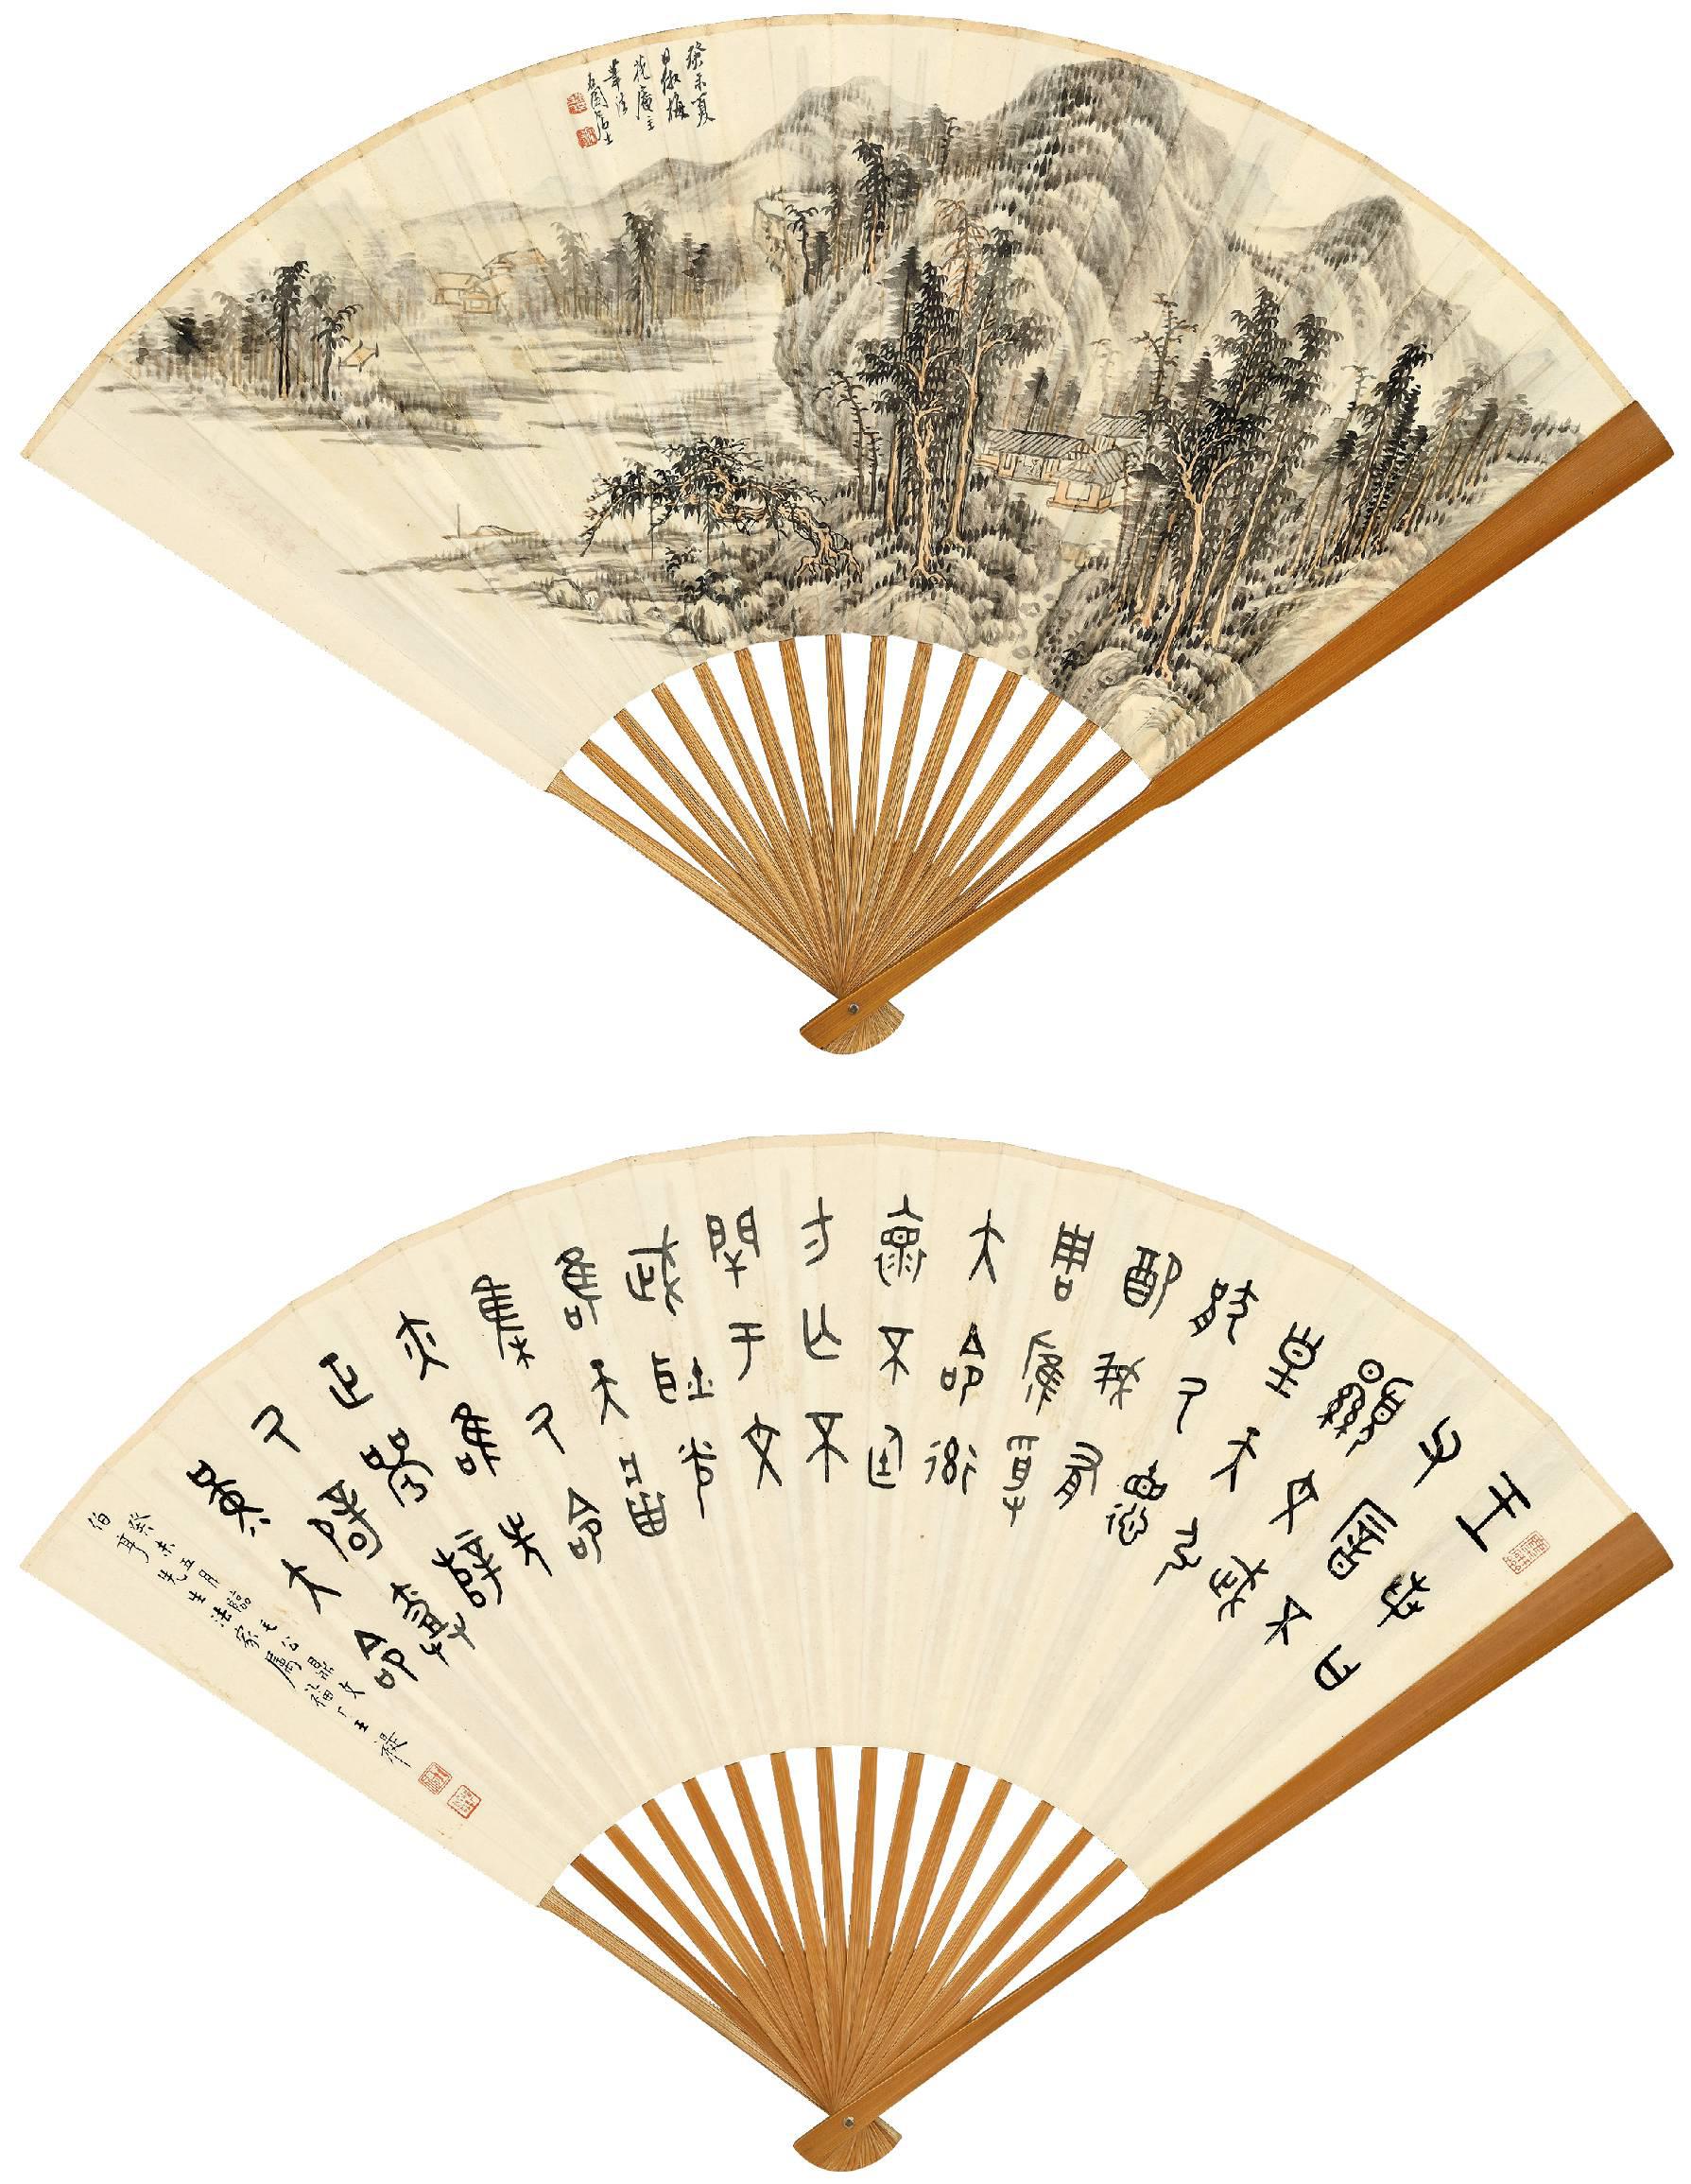 癸未夏
日倣梅
花庵主
筆法
石園居士
王若曰
父厝不
顯文武
皇天弘
猒厥德
配我有
周膺受
大命率
懷不廷
方亡不
閈于文
武耿光
唯天將
集厥命
亦唯先
正襄辥
厥辟
堇大命
癸未五月臨毛公鼎文
伯亨先生法家屬福厂王禔